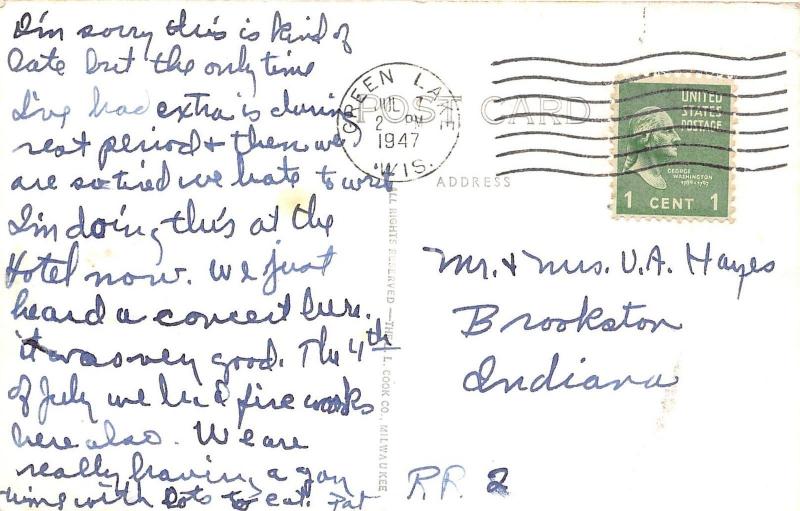 I'm sorry this is kind of
late but the only time
I've had extra is during
rest period & then we
are so tired we hate to writ
I'm doing this at the
Hotel now. We just
heard a concert here.
it was very good. The 4th
of July we had fire works
here also. We are
really having a gay
time with lots to eat. Pat
GREEN LAKE
JUL 7
2 PM
1947
WIS.
POST CARD
ADDRESS
UNITED
STATES
POSTAGE
GEORGE
WASHINGTON
1789-1797
1 CENT 1
Mr. & Mrs. V. A. Hayes
Brookston
Indiana
R.R. 2
ALL RIGHTS RESERVED — THE L. L. COOK CO., MILWAUKEE